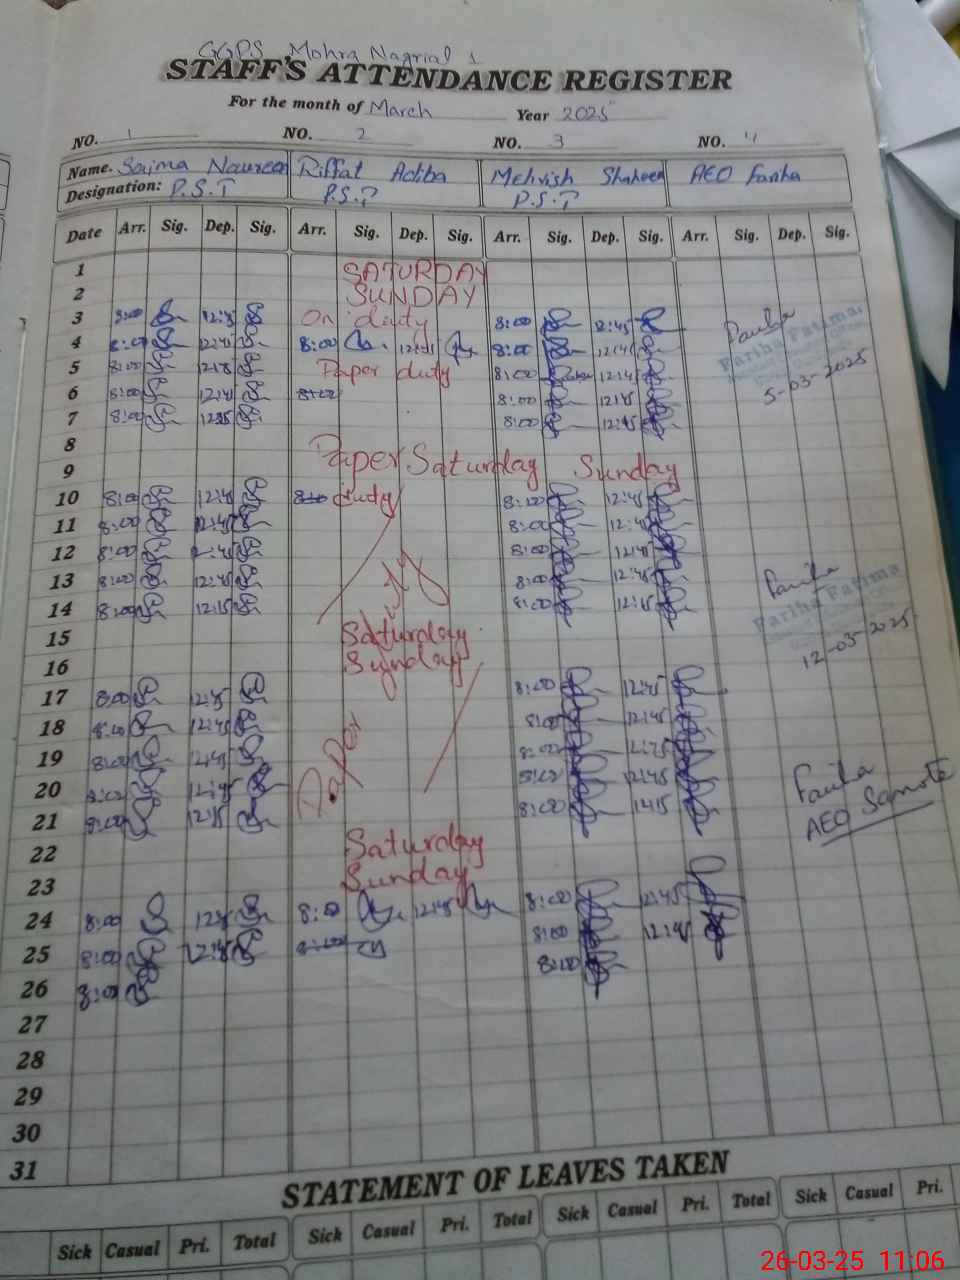 GGPS Mohra Nagrial 1
STAFF'S ATTENDANCE REGISTER
For the month of March Year 2025
NO. 1 NO. 2 NO. 3 NO. 4
Name. Saima Noureen Riffat Adiba Mehvish Shaheen AEO Fariha
Designation: P.S.T P.S.T P.S.T
Date Arr. Sig. Dep. Sig. Arr. Sig. Dep. Sig. Arr. Sig. Dep. Sig. Arr. Sig. Dep. Sig.
1 SATURDAY
2 SUNDAY
3 8:00 12:45 On duty 8:00 12:45 Fariha
4 8:00 12:45 8:00 12:45 8:00 12:45 Fariha Fatima
5 8:00 12:45 Paper duty 8:00 12:45 5-03-2025
6 8:00 12:45 8:00 8:00 12:45
7 8:00 12:45 8:00 12:45
8
9 Paper Saturday Sunday
10 8:00 12:45 8:00 duty 8:00 12:45
11 8:00 12:45 8:00 12:45
12 8:00 12:45 8:00 12:45
13 8:00 12:45 8:00 12:45 Fariha
14 8:00 12:45 8:00 12:45 Fariha Fatima
15 Saturday
16 Sunday 12-03-2025
17 8:00 12:45 8:00 12:45
18 8:00 12:45 8:00 12:45
19 8:00 12:45 Paper 8:00 12:45
20 8:00 12:45 8:00 12:45 Fariha
21 8:00 12:45 8:00 12:45 AEO Samote
22 Saturday
23 Sunday
24 8:00 12:45 8:00 12:45 8:00 12:45
25 8:00 12:45 8:00 8:00 12:45
26 8:00 8:00
27
28
29
30
31
STATEMENT OF LEAVES TAKEN
Sick Casual Pri. Total Sick Casual Pri. Total Sick Casual Pri. Total Sick Casual Pri.
26-03-25 11:06